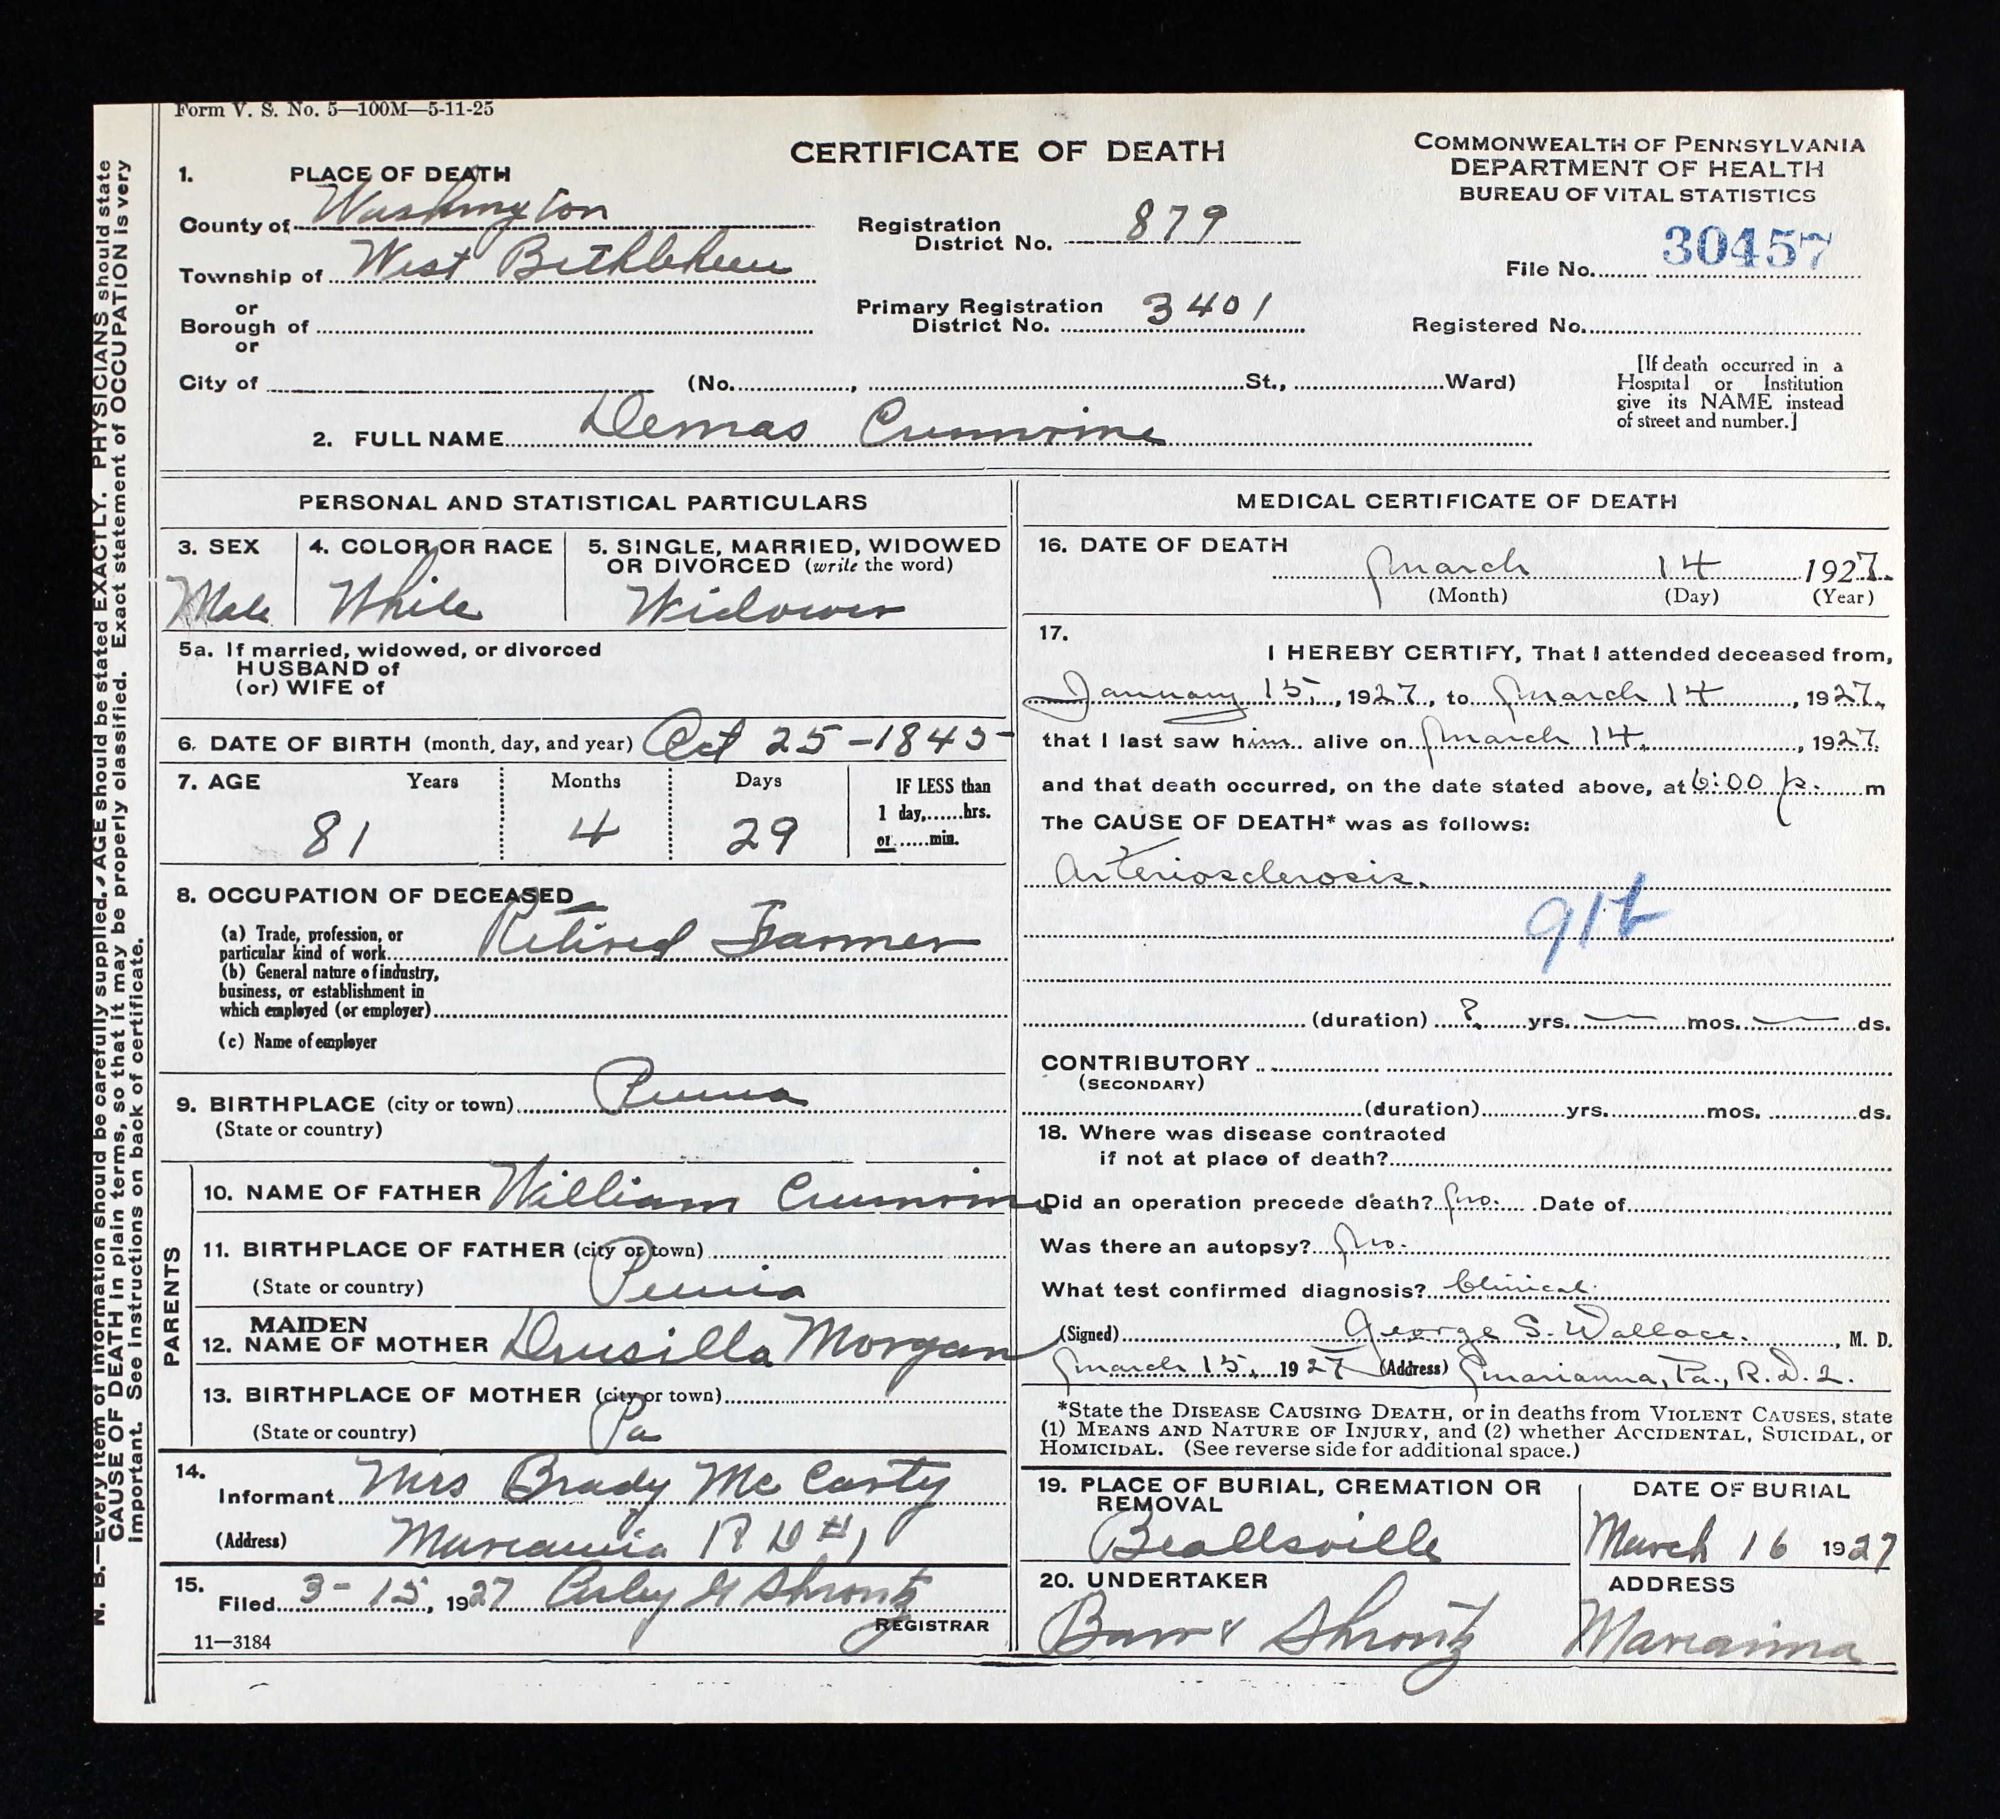 Form V. S. No. 5—100M—5-11-25
CERTIFICATE OF DEATH
COMMONWEALTH OF PENNSYLVANIA
DEPARTMENT OF HEALTH
BUREAU OF VITAL STATISTICS
1. PLACE OF DEATH
County of Washington
Registration District No. 879
File No. 30457
Township of West Bethlehem
or
Borough of
Primary Registration District No. 3401
Registered No.
or
City of (No. , St., Ward)
[If death occurred in a Hospital or Institution give its NAME instead of street and number.]
2. FULL NAME Demas Crumrine
PERSONAL AND STATISTICAL PARTICULARS
3. SEX
Male
4. COLOR OR RACE
White
5. SINGLE, MARRIED, WIDOWED OR DIVORCED (write the word)
Widower
5a. If married, widowed, or divorced
HUSBAND of
(or) WIFE of
6. DATE OF BIRTH (month, day, and year) Oct 25-1845
7. AGE Years Months Days
81 4 29
IF LESS than
1 day,......hrs.
or......min.
8. OCCUPATION OF DECEASED
(a) Trade, profession, or
particular kind of work Retired Farmer
(b) General nature of industry,
business, or establishment in
which employed (or employer)
(c) Name of employer
9. BIRTHPLACE (city or town) Penna
(State or country)
PARENTS
10. NAME OF FATHER William Crumrine
11. BIRTHPLACE OF FATHER (city or town)
(State or country) Penna
12. MAIDEN NAME OF MOTHER Drusilla Morgan
13. BIRTHPLACE OF MOTHER (city or town)
(State or country) Pa
14. Informant Mrs Brady Mc Carty
(Address) Marianna R D #1
15. Filed 3-15, 1927 Shrontz
REGISTRAR
11—3184
MEDICAL CERTIFICATE OF DEATH
16. DATE OF DEATH
March 14 1927
(Month) (Day) (Year)
17. I HEREBY CERTIFY, That I attended deceased from,
January 15, 1927, to March 14, 1927,
that I last saw him alive on March 14, 1927
and that death occurred, on the date stated above, at 6:00 p. m
The CAUSE OF DEATH* was as follows:
Arteriosclerosis.
91b
(duration) ? yrs. — mos. — ds.
CONTRIBUTORY
(SECONDARY)
(duration) yrs. mos. ds.
18. Where was disease contracted
if not at place of death?
Did an operation precede death? no. Date of
Was there an autopsy? no.
What test confirmed diagnosis? Clinical.
(Signed) George S. Wallace, M. D.
March 15, 1927 (Address) Marianna, Pa., R.D. 2.
*State the DISEASE CAUSING DEATH, or in deaths from VIOLENT CAUSES, state
(1) MEANS AND NATURE OF INJURY, and (2) whether ACCIDENTAL, SUICIDAL, or
HOMICIDAL. (See reverse side for additional space.)
19. PLACE OF BURIAL, CREMATION OR REMOVAL
Beallsville
DATE OF BURIAL
March 16 1927
20. UNDERTAKER
Barr & Shrontz
ADDRESS
Marianna
N. B.—Every item of information should be carefully supplied. AGE should be stated EXACTLY. PHYSICIANS should state
CAUSE OF DEATH in plain terms, so that it may be properly classified. Exact statement of OCCUPATION is very
important. See instructions on back of certificate.